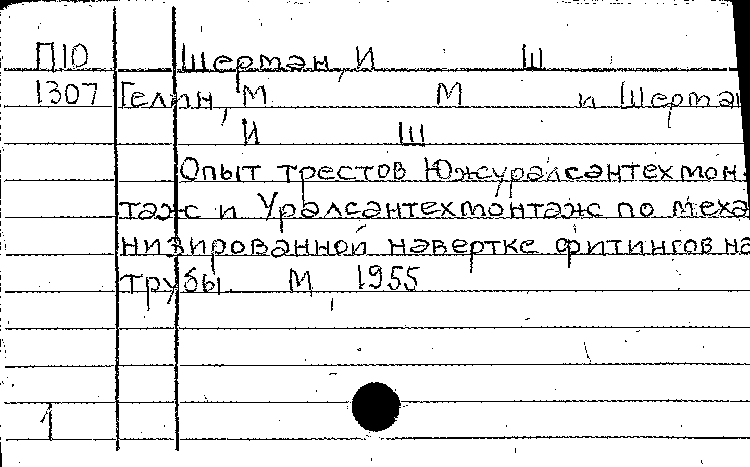 П10 Шерман, И Ш
1307 Гелин, М М и Шерма
И Ш
Опыт трестов Южуралсантехмон-
таж и Уралсантехмонтаж по меха
низированной навертке фитингов на
трубы. М, 1955
1